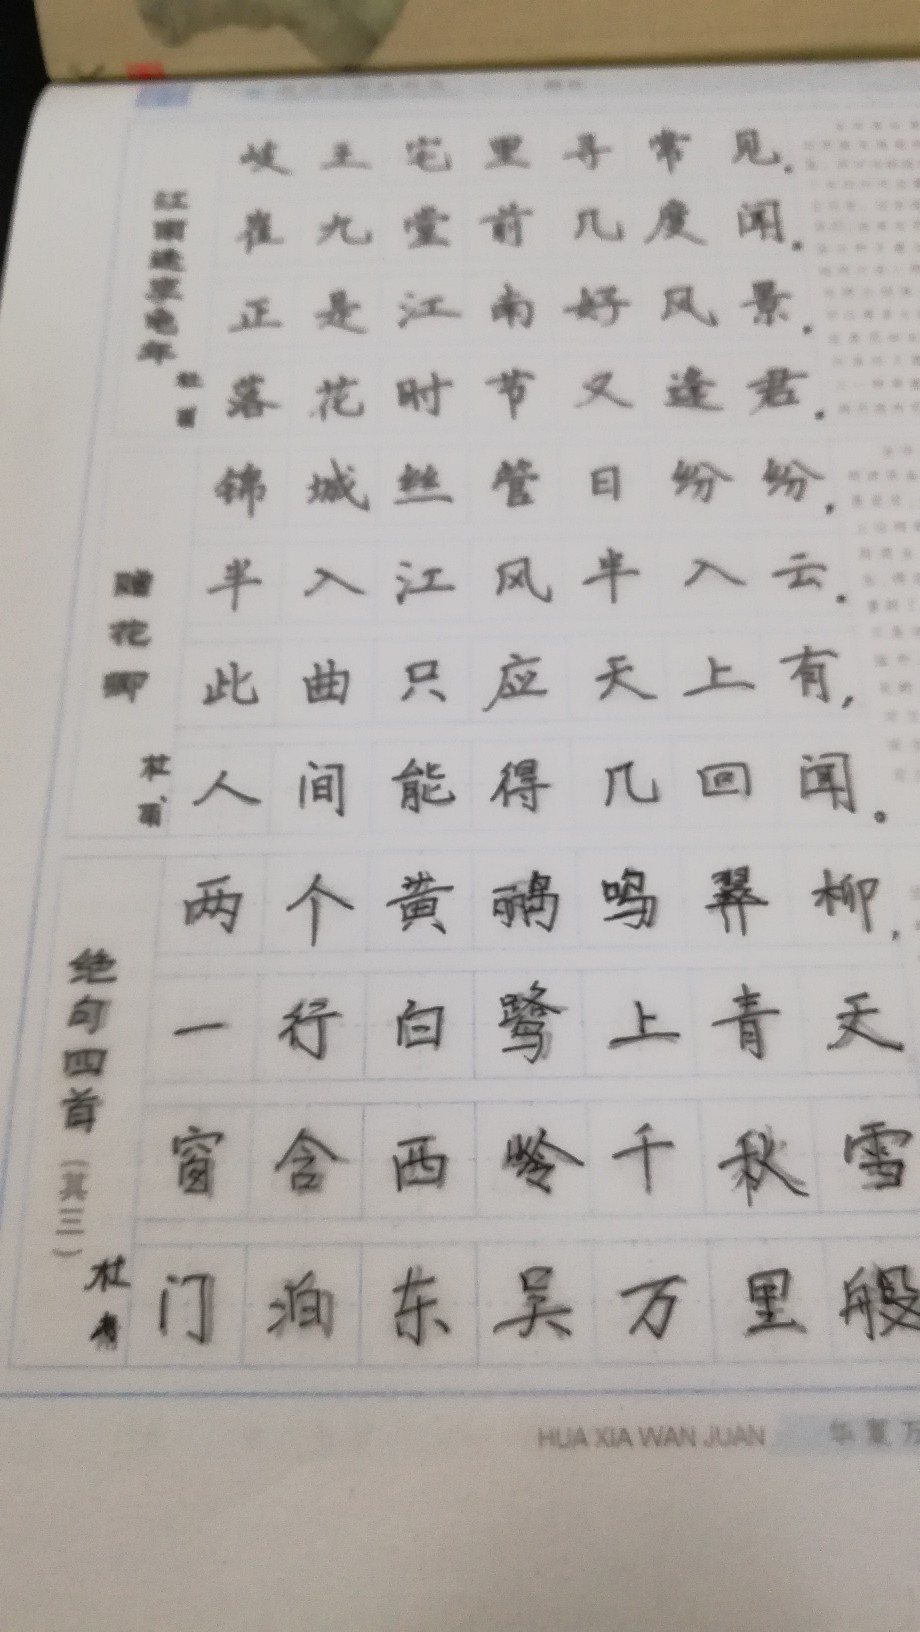 江南逢李龟年
杜甫
岐王宅里寻常见,
崔九堂前几度闻。
正是江南好风景,
落花时节又逢君。
赠花卿
杜甫
锦城丝管日纷纷,
半入江风半入云。
此曲只应天上有,
人间能得几回闻。
绝句四首
(其三)
杜甫
两个黄鹂鸣翠柳,
一行白鹭上青天
窗含西岭千秋雪
门泊东吴万里船
HUA XIA WAN JUAN 华夏万